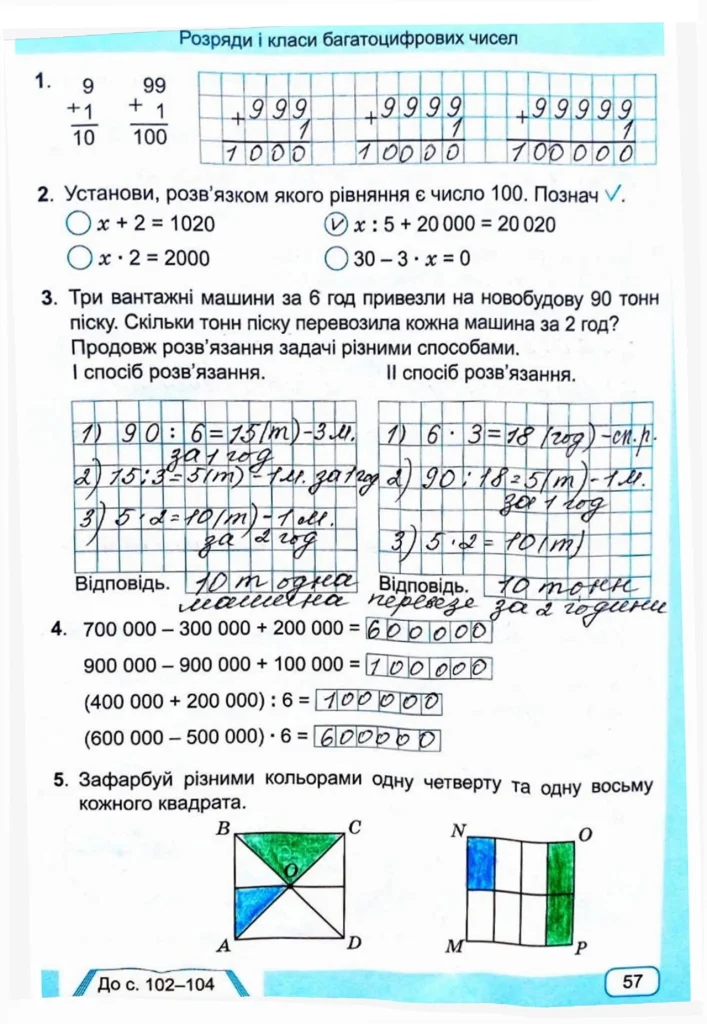 Розряди і класи багатоцифрових чисел
1. 9 99 999 9999 99999
+1 + 1 + 1 + 1 + 1
10 100 1000 10000 100000
2. Установи, розв'язком якого рівняння є число 100. Познач ✓.
x + 2 = 1020 ✓ x : 5 + 20 000 = 20 020
x · 2 = 2000 30 – 3 · x = 0
3. Три вантажні машини за 6 год привезли на новобудову 90 тонн
піску. Скільки тонн піску перевозила кожна машина за 2 год?
Продовж розв'язання задачі різними способами.
І спосіб розв'язання. ІІ спосіб розв'язання.
1) 90 : 6 = 15 (т) – 3 м. 1) 6 · 3 = 18 (год) – сп. р.
за 1 год
2) 15 : 3 = 5 (т) – 1 м. за 1 год 2) 90 : 18 = 5 (т) – 1 м.
за 1 год
3) 5 · 2 = 10 (т) – 1 м. 3) 5 · 2 = 10 (т)
за 2 год
Відповідь. 10 т одна Відповідь. 10 тонн
машина перевезе за 2 години
4. 700 000 – 300 000 + 200 000 = 600000
900 000 – 900 000 + 100 000 = 100000
(400 000 + 200 000) : 6 = 100000
(600 000 – 500 000) · 6 = 600000
5. Зафарбуй різними кольорами одну четверту та одну восьму
кожного квадрата.
B C N O
O
A D M P
До с. 102–104 57